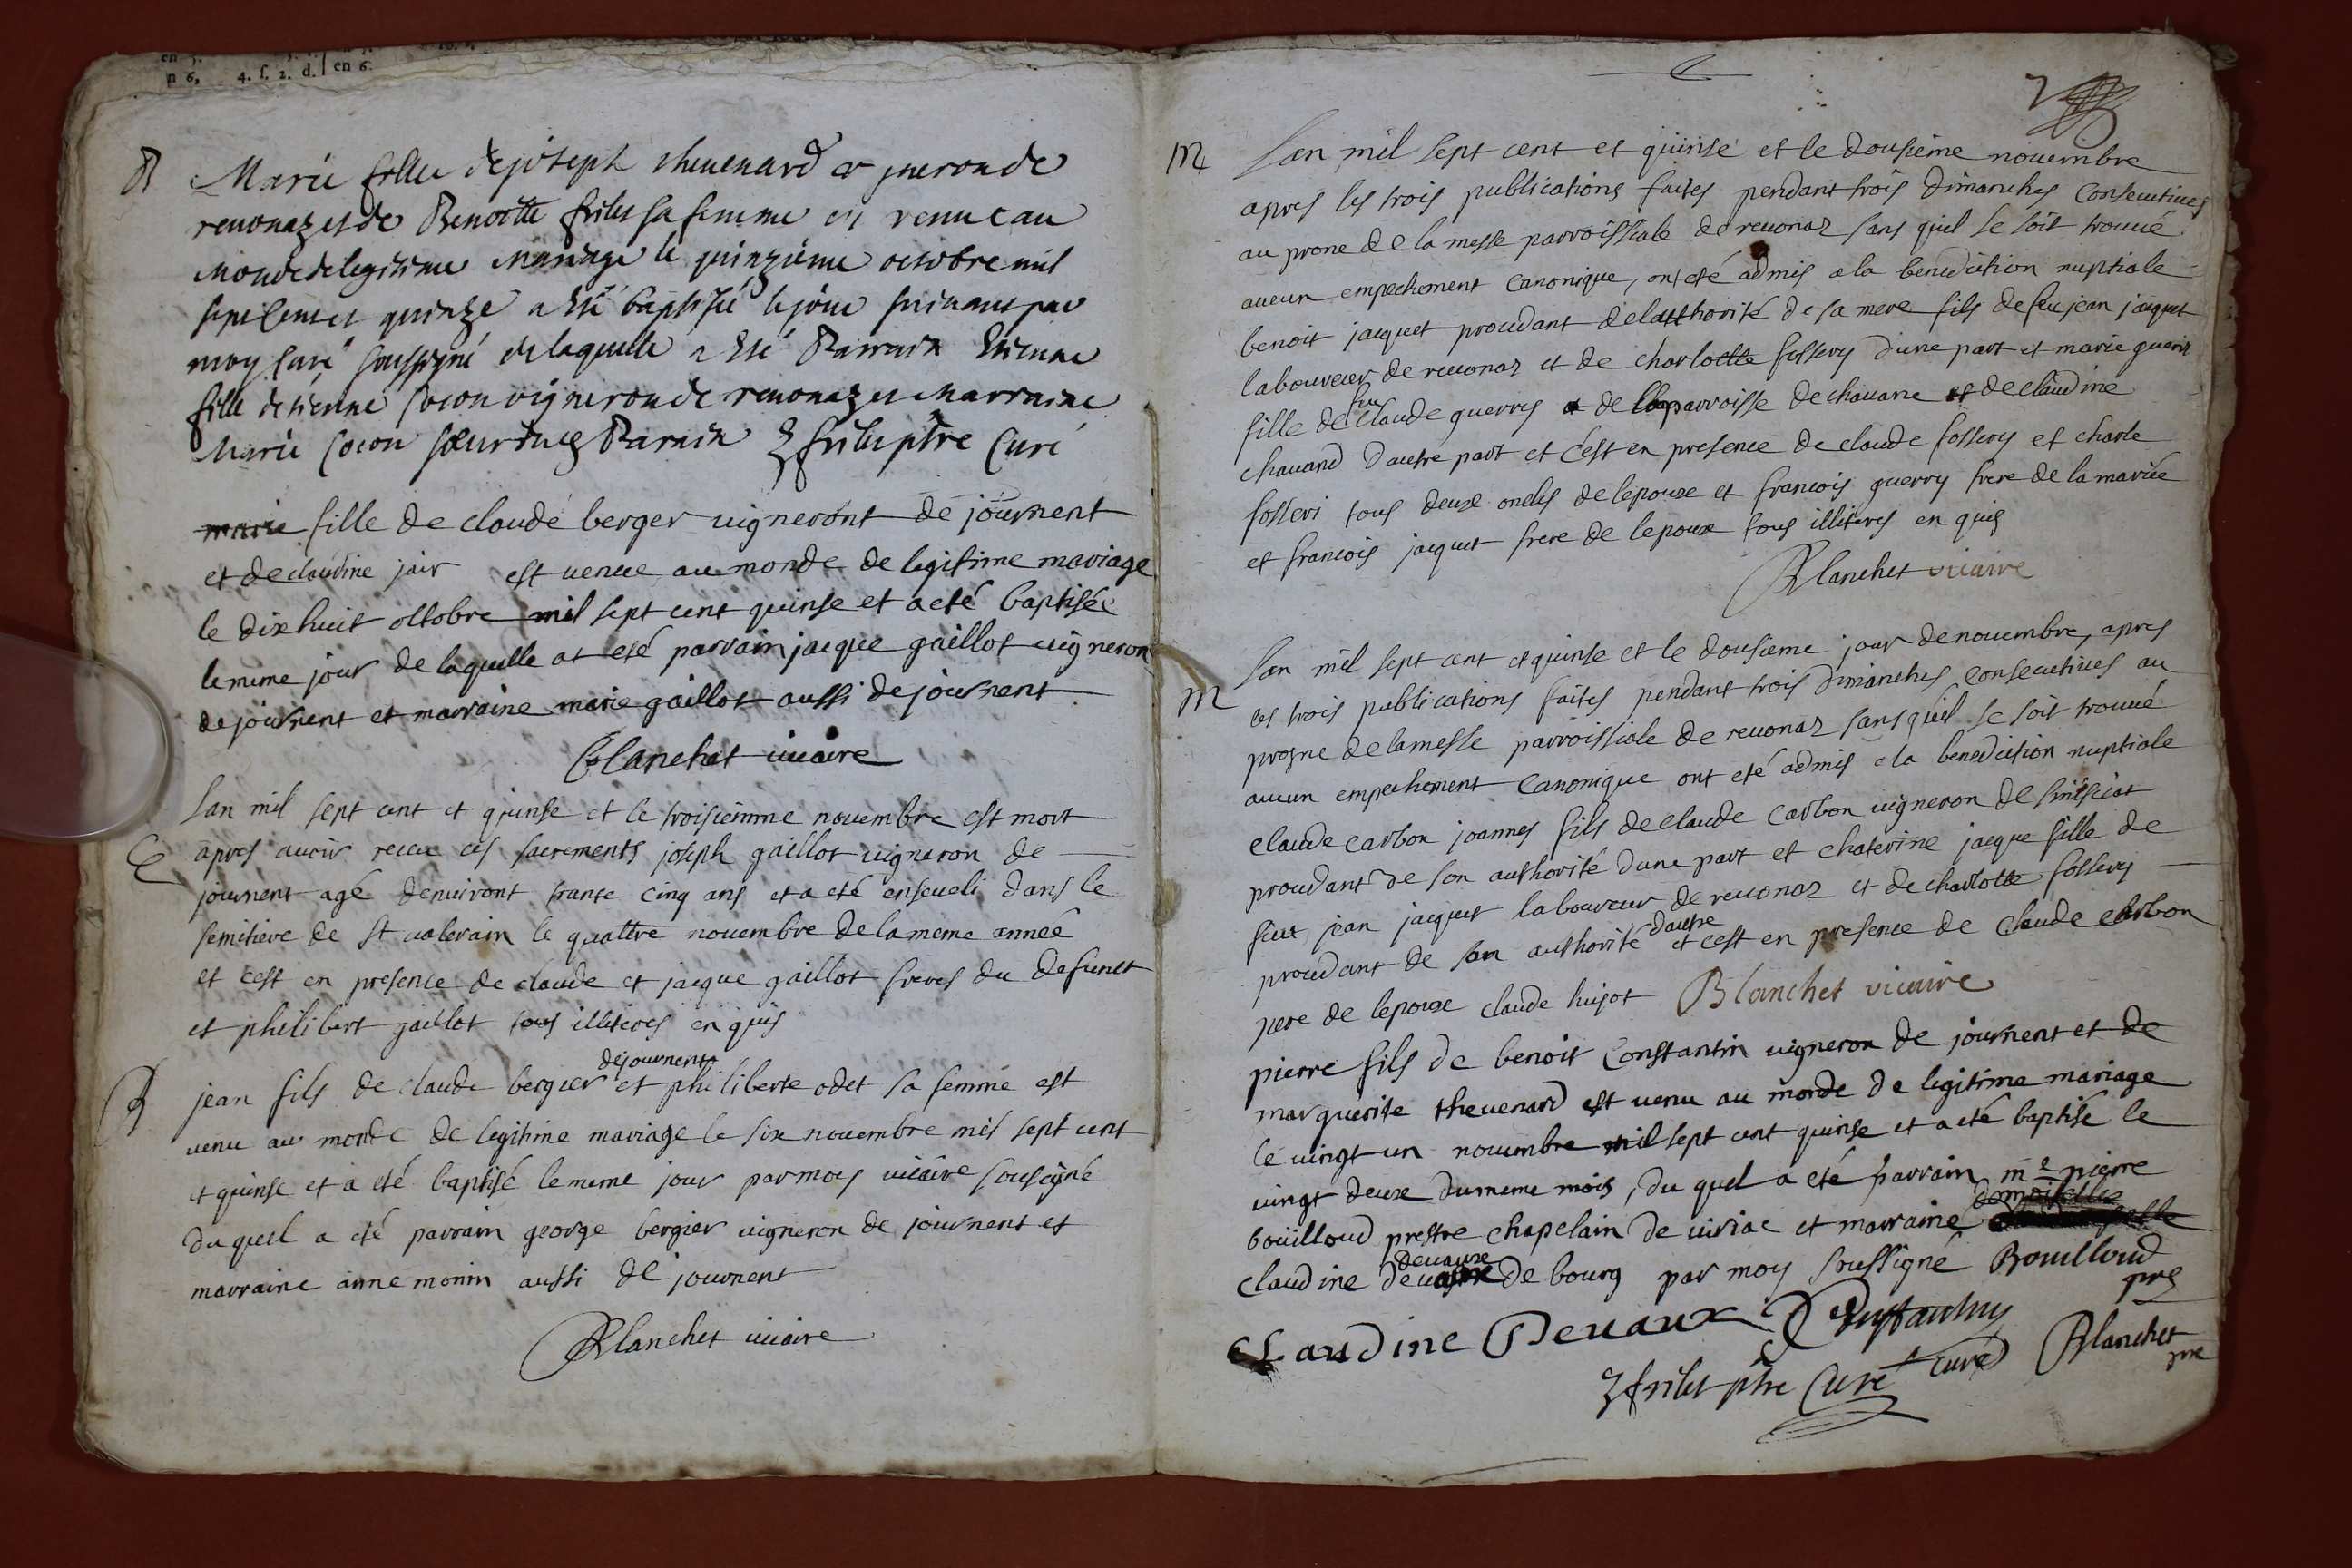 n 6. 4. s. 2. d. en 6.
B Marie fille de joseph thevenard vigneron de
revonaz et de Benoitte frilet sa femme est venue au
monde de legitime mariage le quinzième octobre mil
sept cents et quinze a esté baptisée le jour suivant par
moy curé soussigné de laquelle a esté Parrain Etienne
fille detienne cocon vigneron de revonaz et marraine
Marie Cocon soeur dudt Parain frilet ptre Curé
marie fille de claude berger vigneront de journent
et de claudine jair est venue au monde de legitime mariage
le dixhuit oltobre mil sept cent quinse et a eté baptisée
le mime jour de laquelle at eté parrain jacque gaillot vigneron
de journent et marraine marie gaillot aussi de journent
Blanchet vicaire
C lan mil sept cent et quinse et le troisiemme novembre est mort
apres avoir receu ces sacrements joseph gaillot vigneron de
journent agé denviront trante cinq ans et a eté enseveli dans le
semitiere de st valerain le quattre novembre de la meme année
et cest en presence de claude et jacque gaillot freres du defunct
et philibert gaillot tous illiteres en quis
dejournent
B jean fils de claude bergier et philiberte odet sa femme est
venu au monde de legitime mariage le six novembre mil sept cent
et quinse et a eté baptisé le meme jour par moy vicaire souseigné
du quel a eté parrain george bergier vigneron de journent et
marraine anne monin aussi de journent
Blanchet vicaire
2
M lan mil sept cent et quinse et le dousieme novembre
apres les trois publications faites pendant trois dimanches consecutives
au prone de la messe parroissiale de revonaz sans quil se soit trouvé
aucun empechement canonique, ont eté admis a la benediction nuptiale
benoit jacquet procedant de lauthorité de sa mere fils de feu jean jacquet
laboureur de revonaz et de charlotte fossery dune part et marie guerin
feu
fille de claude guerrys de la parroisse de chavane et de claudine
chavand dautre part et cest en presence de claude fossery et charle
fosseri tous deux oncles de lepouse et francois guerry frere de la mariée
et francois jacquet frere de lepoux tous illiteres en quis
Blanchet vicaire
M lan mil sept cent et quinse et le dousieme jour de novembre, apres
les trois publications faites pendant trois dimanches consecutives au
prosne de la messe parroissiale de revonaz sans quil se soit trouvé
aucun empechement canonique ont eté admis a la benediction nuptiale
claude carbon joannes fils de claude carbon vigneron de simisciat
procedant de son authorité dune part et chaterine jacque fille de
feut jean jacquet laboureur de revonaz et de charlotte fossery
dautre
procedant de son authorité et cest en presence de claude carbon
pere de lepoux claude hugot Blanchet vicaire
pierre fils de benoit Constantin vigneron de journent et de
marguerite thevenard est venu au monde de legitime mariage
le vingt un novembre mil sept cent quinse et a eté baptisé le
vingt deux du meme mois, du quel a eté parrain me pierre
demoiselle
boüilloud prestre chapelain de viriac et marraine
devaux
claudine de bourg par moy soussigné Bouilloud
pre
Claudine Devaux
curé Blanchet
pre
frilet ptre Curé